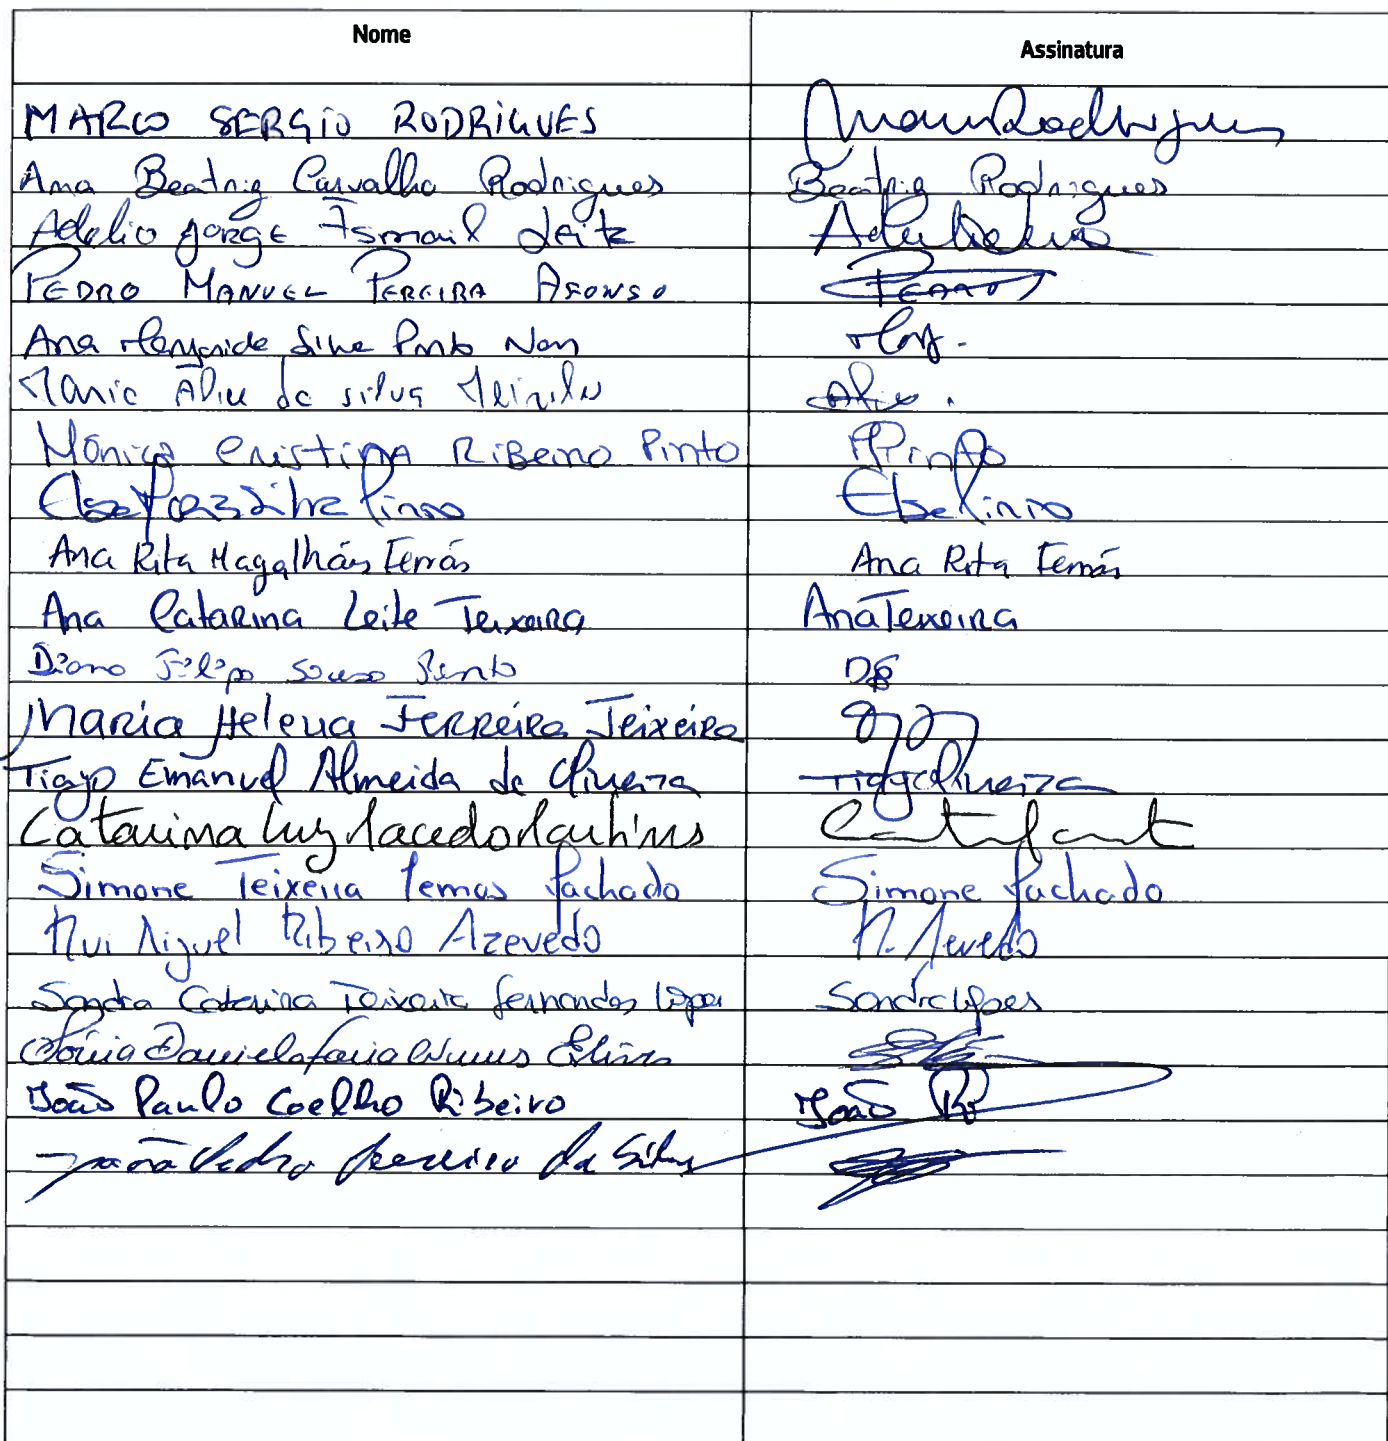 Nome Assinatura
MARCO SERGIO RODRIGUES
Ana Beatriz Carvalho Rodrigues Beatriz Rodrigues
Adelio Jorge Ismail Leite
PEDRO MANUEL PEREIRA AFONSO PEDRO
Ana Margarida Silva Pinto
Maria da Silva
Mónica Cristina Ribeiro Pinto MPinto
Silva Pinto Pinto
Ana Rita Magalhães Ferrás Ana Rita Ferrás
Ana Catarina Leite Teixeira Ana Teixeira
Filipe Sousa
Maria Helena Ferreira Teixeira
Tiago Emanuel Almeida de Oliveira Tiago Oliveira
Catarina Luz Macedo Martins
Simone Teixeira Lemos Machado Simone Machado
Rui Miguel Ribeiro Azevedo R. Azevedo
Sandra Catarina Teixeira Fernandes Lopes Sandra Lopes
Daniela Faria Nunes
João Paulo Coelho Ribeiro João
João Pedro da Silva